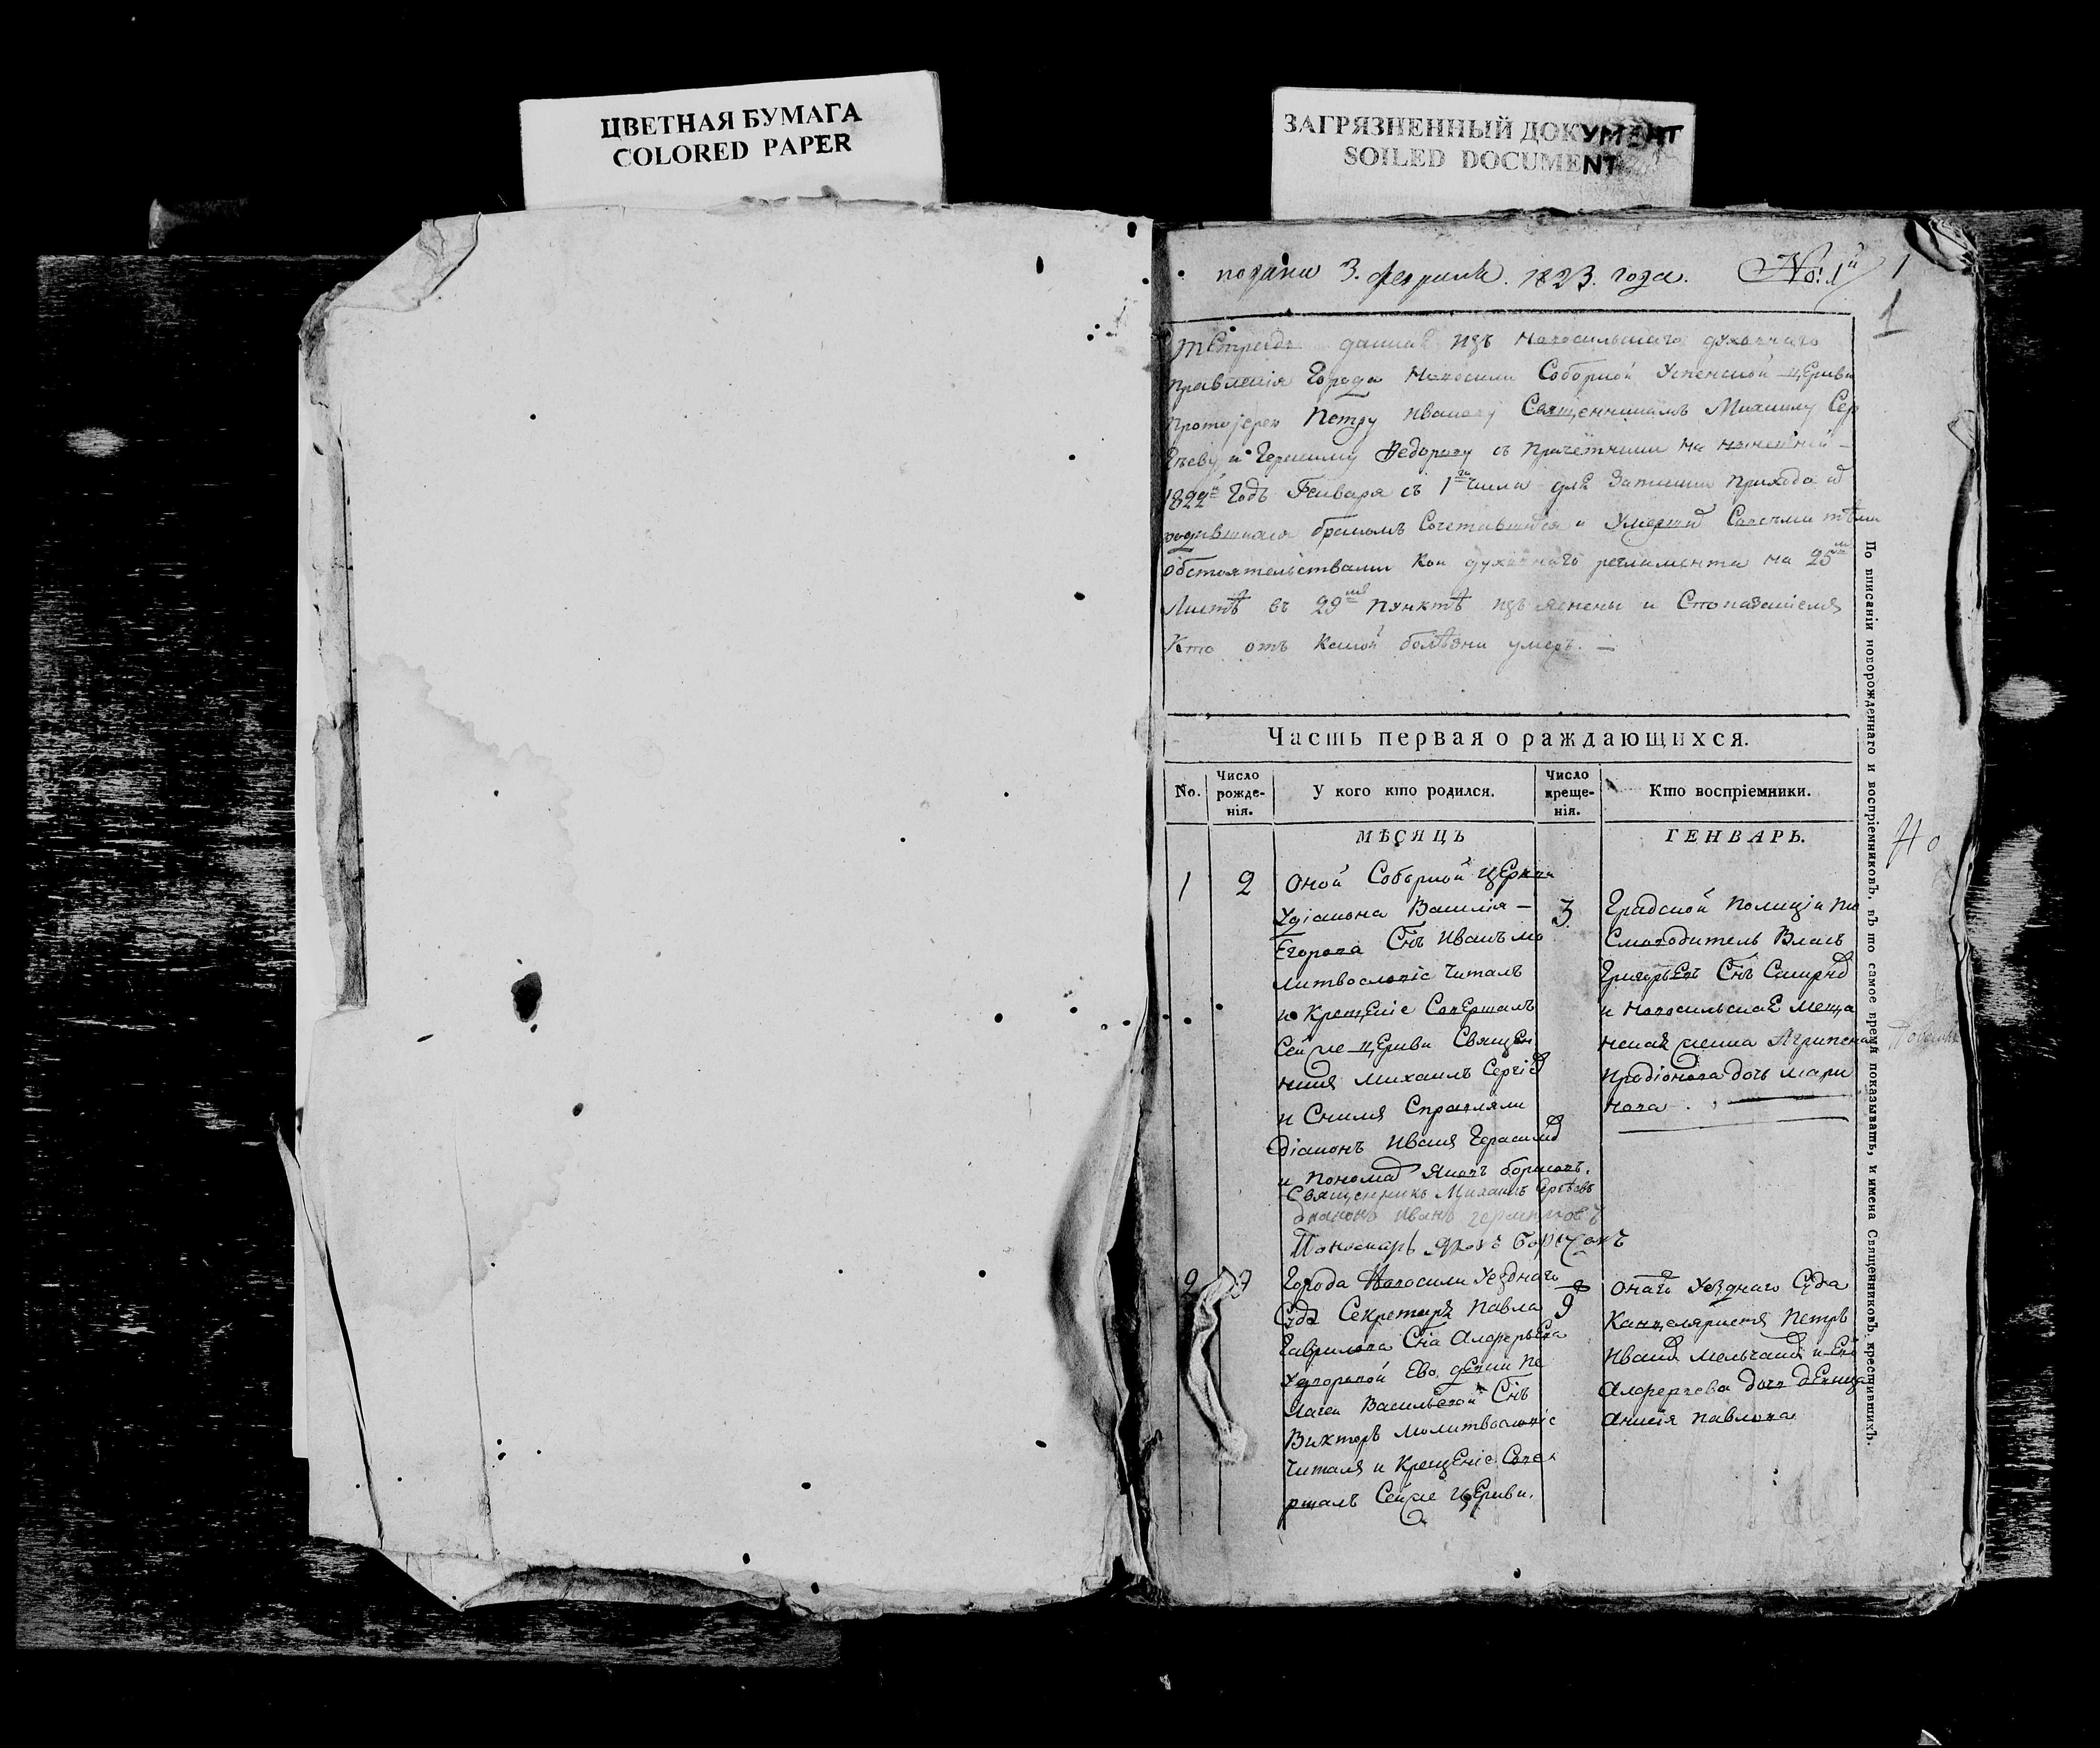 ЦВЕТНАЯ БУМАГА
COLORED PAPER
ЗАГРЯЗНЕННЫЙ ДОКУМЕНТ
SOILED DOCUMENT
подана 3. февраля. 1823. года. No: 1й 1
1
тетрадь данная изъ Новосильскаго духовнаго
правленія Города Новосили Соборной Успенской церкви
протоіерею Петру Иванову Священникамъ Михаилу Сер
гѣеву и Герасиму Федорову съ причетники на нынешней
1822й Годъ Генваря съ 1го числа для записки прихода
родившихся бракомъ Сочетавшихся и Умерших Совсеми тѣми
обстоятельствами кои духовнаго регламента на 25м
Листѣ въ 29мъ пунктѣ изъяснены и Спо показаніемъ
Кто отъ какой болѣзни умеръ. —
Часть первая о раждающихся.
No.
Число рожде-нія.
У кого кто родился.
Число креще-нія.
Кто воспріемники.
МѢСЯЦЪ
ГЕНВАРЬ.
1 2
Оной Соборной церкви
Удіакона Василія —
Егорова Снъ Иванъ мо
литвословіе читалъ
и Крещеніе Совершалъ
Сей же церкви Священ
никъ Михаилъ Сергіев
и Снимъ Справляли
діаконъ Иванъ Герасимов
и Пономар Яковъ борисовъ.
Священникъ Михаилъ Сергѣевъ
диаконъ Иванъ герасимовъ
Пономарь Яковъ борисовъ
3.
Градской Полиціи Пи
Смоводитель Власъ
Григорьевъ Снъ Смирнов
и Новосильская меща
нская жена Агрипена
Иродіонова дочь Мари
нова
2 7
Города Новосили Уезднаго
Суда Секретаря Павла
Гаврилова Сна Алферьева
Удворовой Ево девки Пе
лагеи Васильевой Снъ
Викторъ Молитвословіе
Читалъ и Крещеніе Сове
ршалъ Сей же церкви.
9
Онаго Уезднаго Суда
Канцеляристъ Петръ
Иванов Мельчаков и Ево
Алферьева дочь девица
Анисія Павлова
По вписаніи новорожденнаго и воспріемниковъ, въ то самое время показывать, и имена Священниковъ крестившихъ.